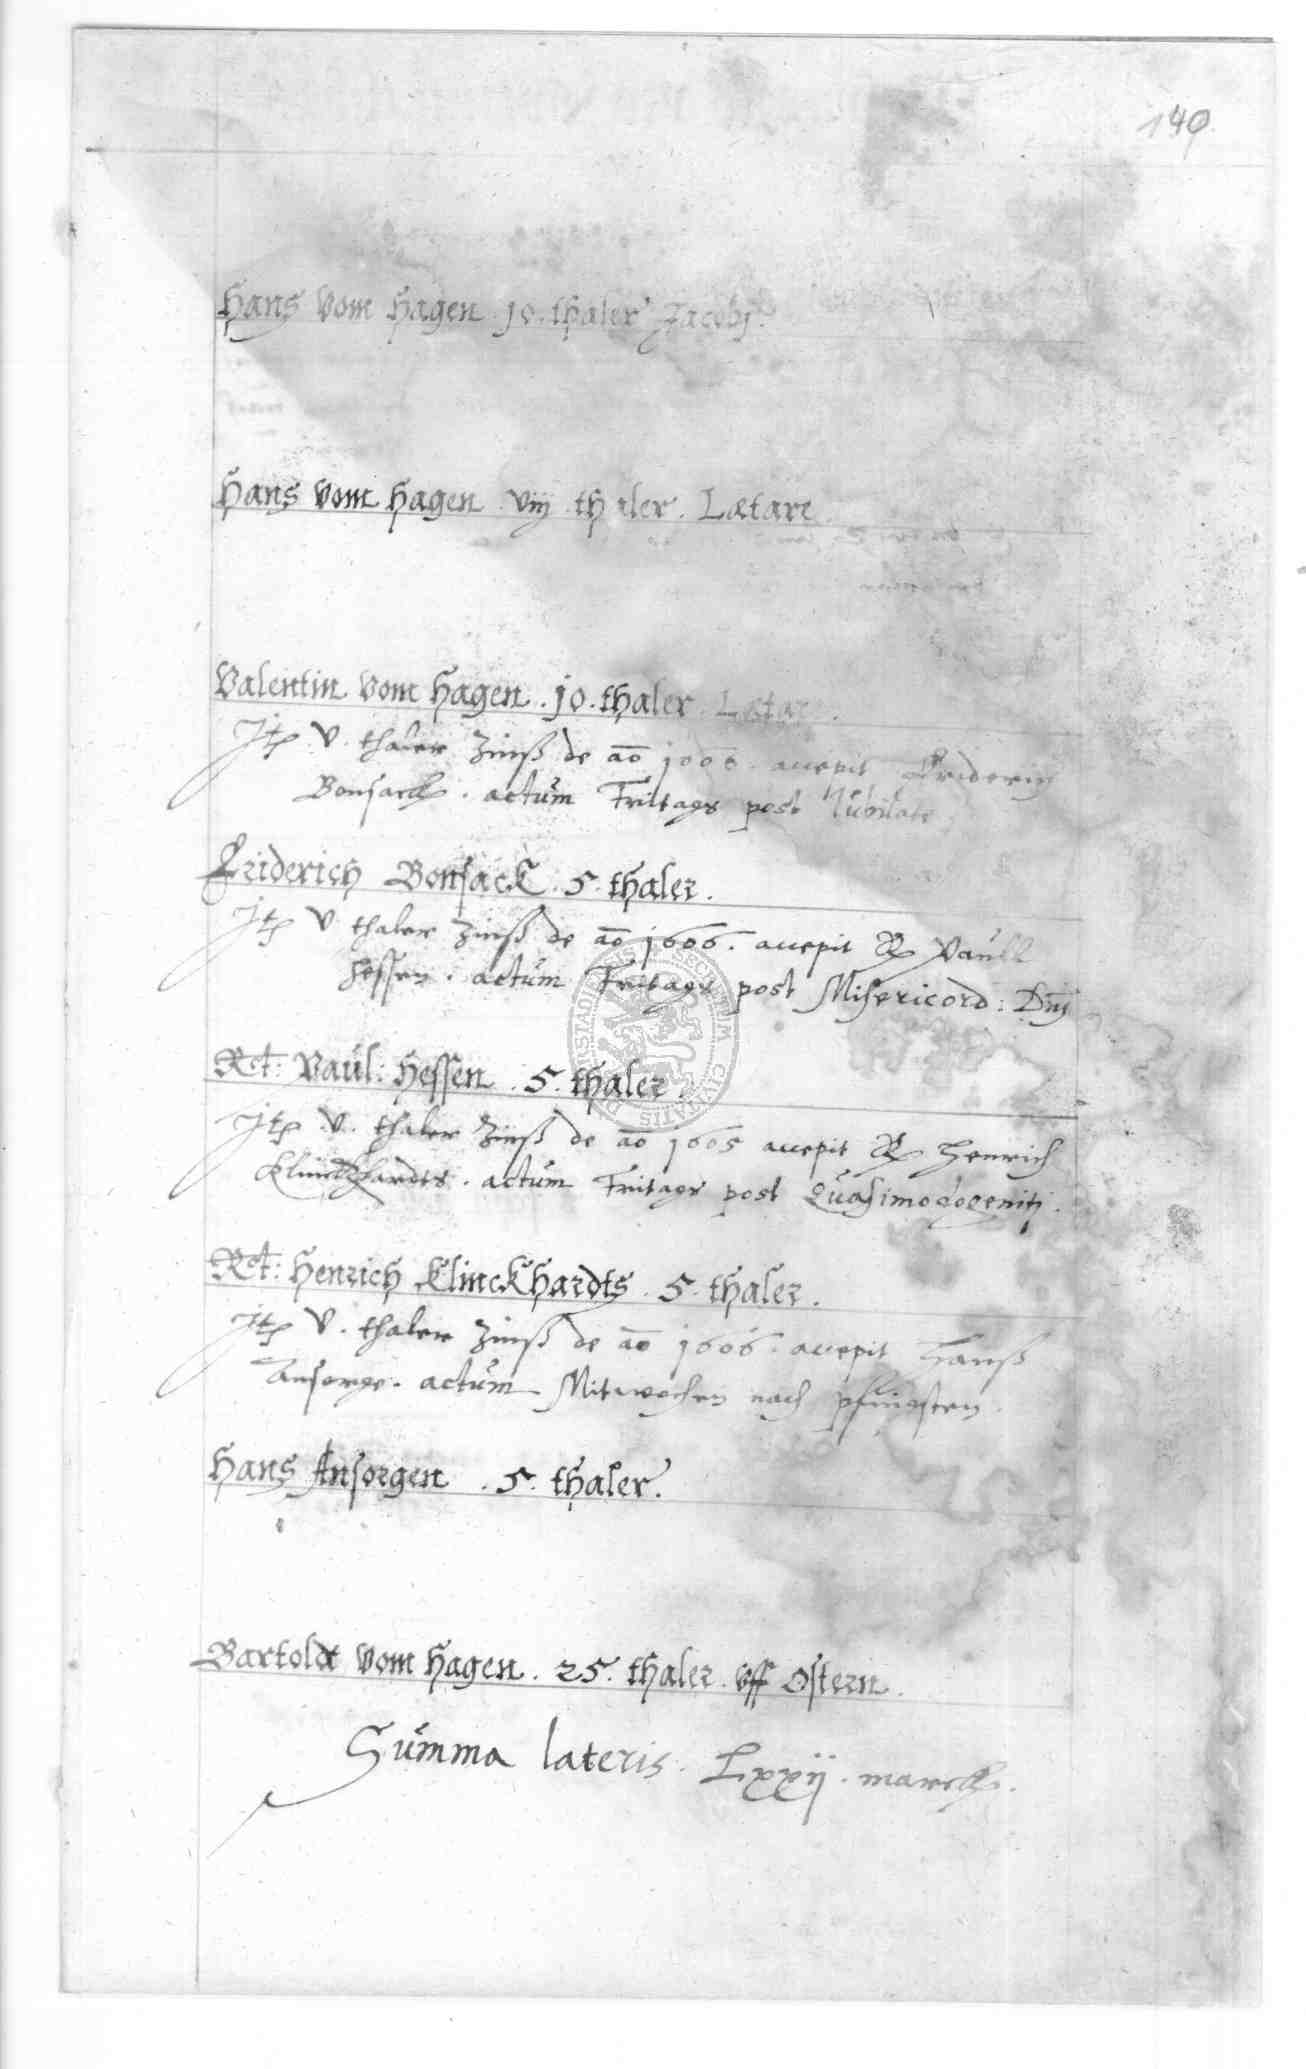 140
Hans vom Hagen . 10 . thaler Jacobi .
Hans vom Hagen . viij thaler . Lætare
Valentin vom Hagen . 10 . thaler . Lætare .
Itē v . thaler Zinß de aō 1606 . accepit Friderich
Bonsack . actum Fritags post Jubilate
Friderich Bonsack . 5 . thaler .
Itē v thaler Zinß de aō 1606 . accepit R Paull
Hessen . actum Fritags post Misericord : Dnj
Rct : Paul : Hessen . 5 . thaler .
Itē v . thaler Zinß de aō 1605 accepit R Henrich
Klinckhardts . actum Fritags post Quasimodogeniti .
Rct : Henrich Klinckhardts . 5 . thaler .
Itē v . thaler Zinß de aō 1606 . accepit Hanß
Ansorge . actum Mitwochen nach pfingsten .
Hans Ansorgen . 5 . thaler .
Bartoldt vom Hagen . 25 . thaler . uff Ostern .
Summa lateris . Lxxij . marck .
SECRETUM CIVITATIS